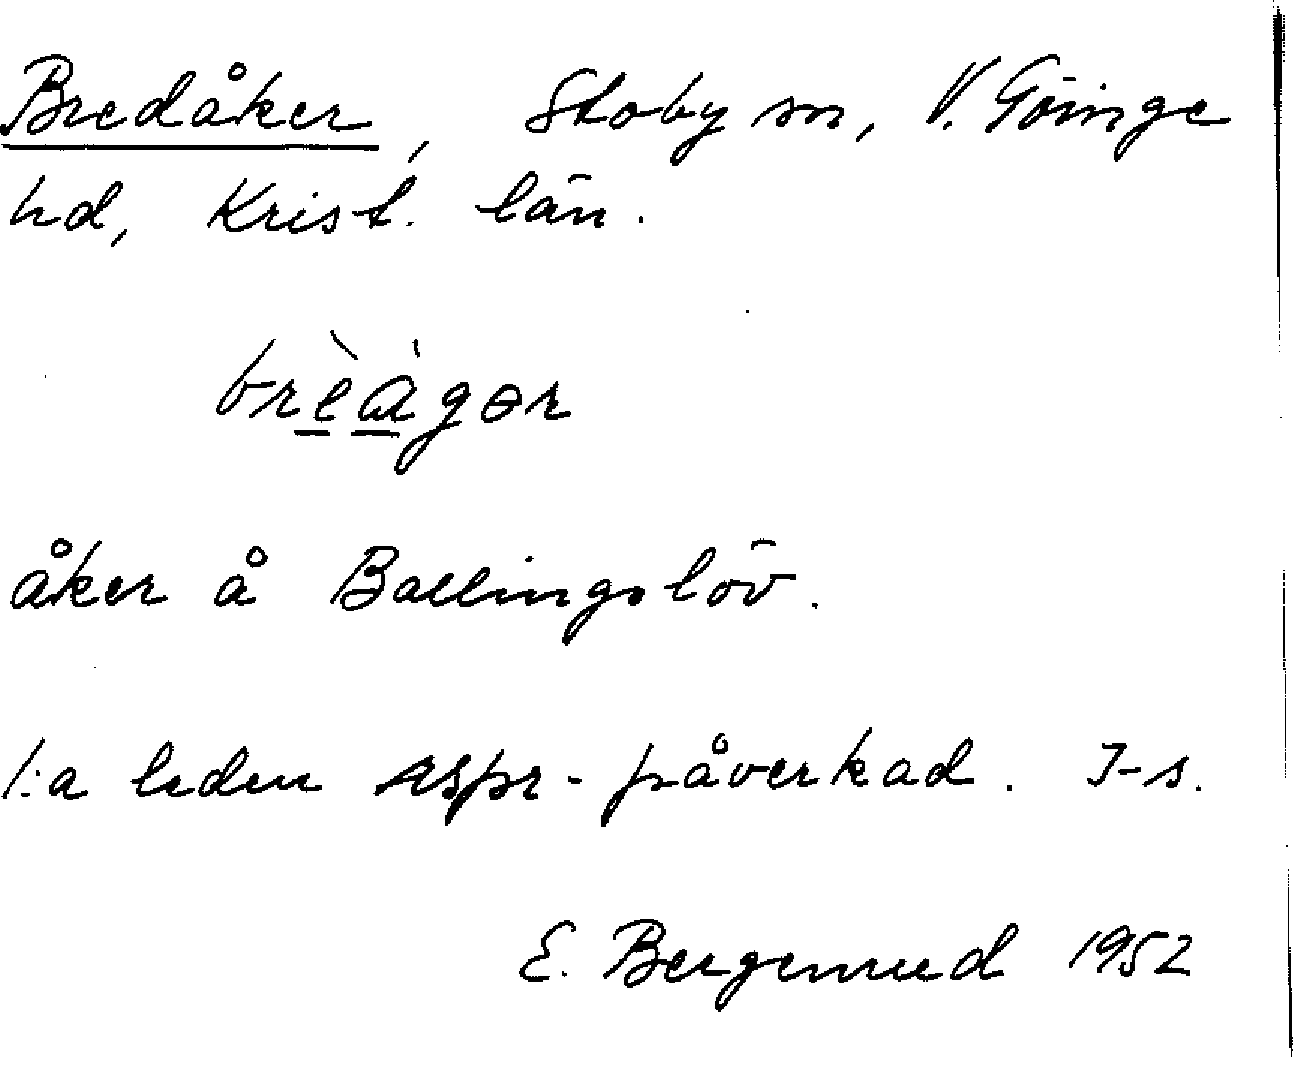 Bredåker, Stoby sn, V. Göinge
hd, Krist. län.
brèàgər
åker å Ballingslöv.
1:a leden rspr-påverkad. I-s.
E. Bergenrud 1952